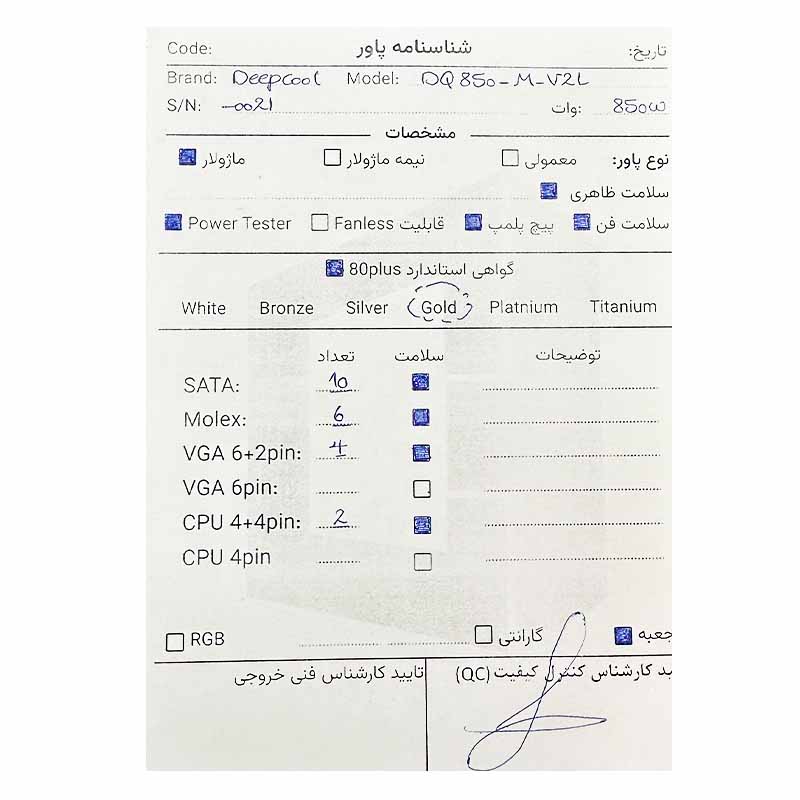 Code: شناسنامه پاور تاریخ:
Brand: Deepcool Model: DQ850-M-V2L
S/N: -0021 وات: 850W
مشخصات
نوع پاور: معمولی نیمه ماژولار ماژولار
سلامت ظاهری
سلامت فن پیچ پلمپ قابلیت Fanless Power Tester
گواهی استاندارد 80plus
White Bronze Silver Gold Platnium Titanium
تعداد سلامت توضیحات
SATA: 10
Molex: 6
VGA 6+2pin: 4
VGA 6pin:
CPU 4+4pin: 2
CPU 4pin
RGB گارانتی جعبه
تایید کارشناس فنی خروجی
ید کارشناس کنترل کیفیت (QC)